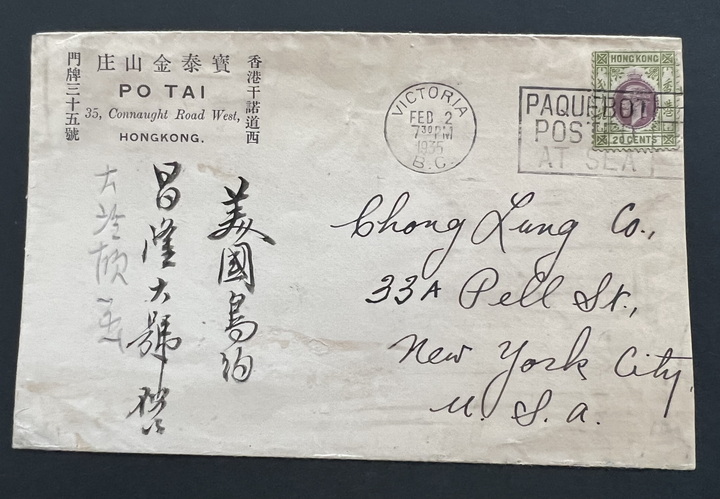 寶泰金山庄
PO TAI
35, Connaught Road West,
HONGKONG.
香港干諾道西
門牌三十五號
VICTORIA
FEB 2
7 30 PM
1935
B.C.
PAQUEBOT
POSTED
AT SEA
HONGKONG
香港
20 CENTS
美國鳥約
昌隆大號
Chong Lung Co.,
33A Pell St.,
New York City,
U. S. A.